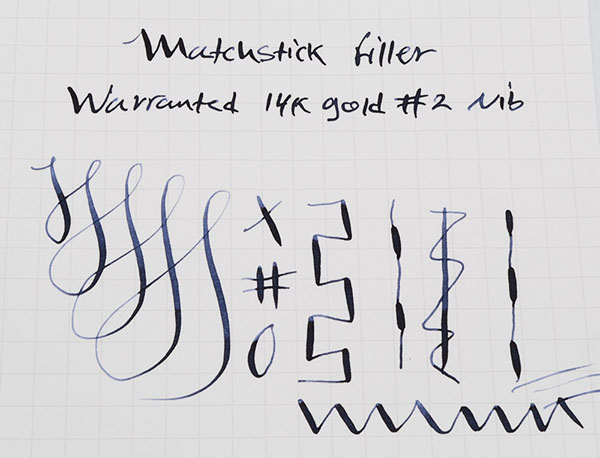 Matchstick Filler
Warranted 14K gold #2 Nib
X
#
O